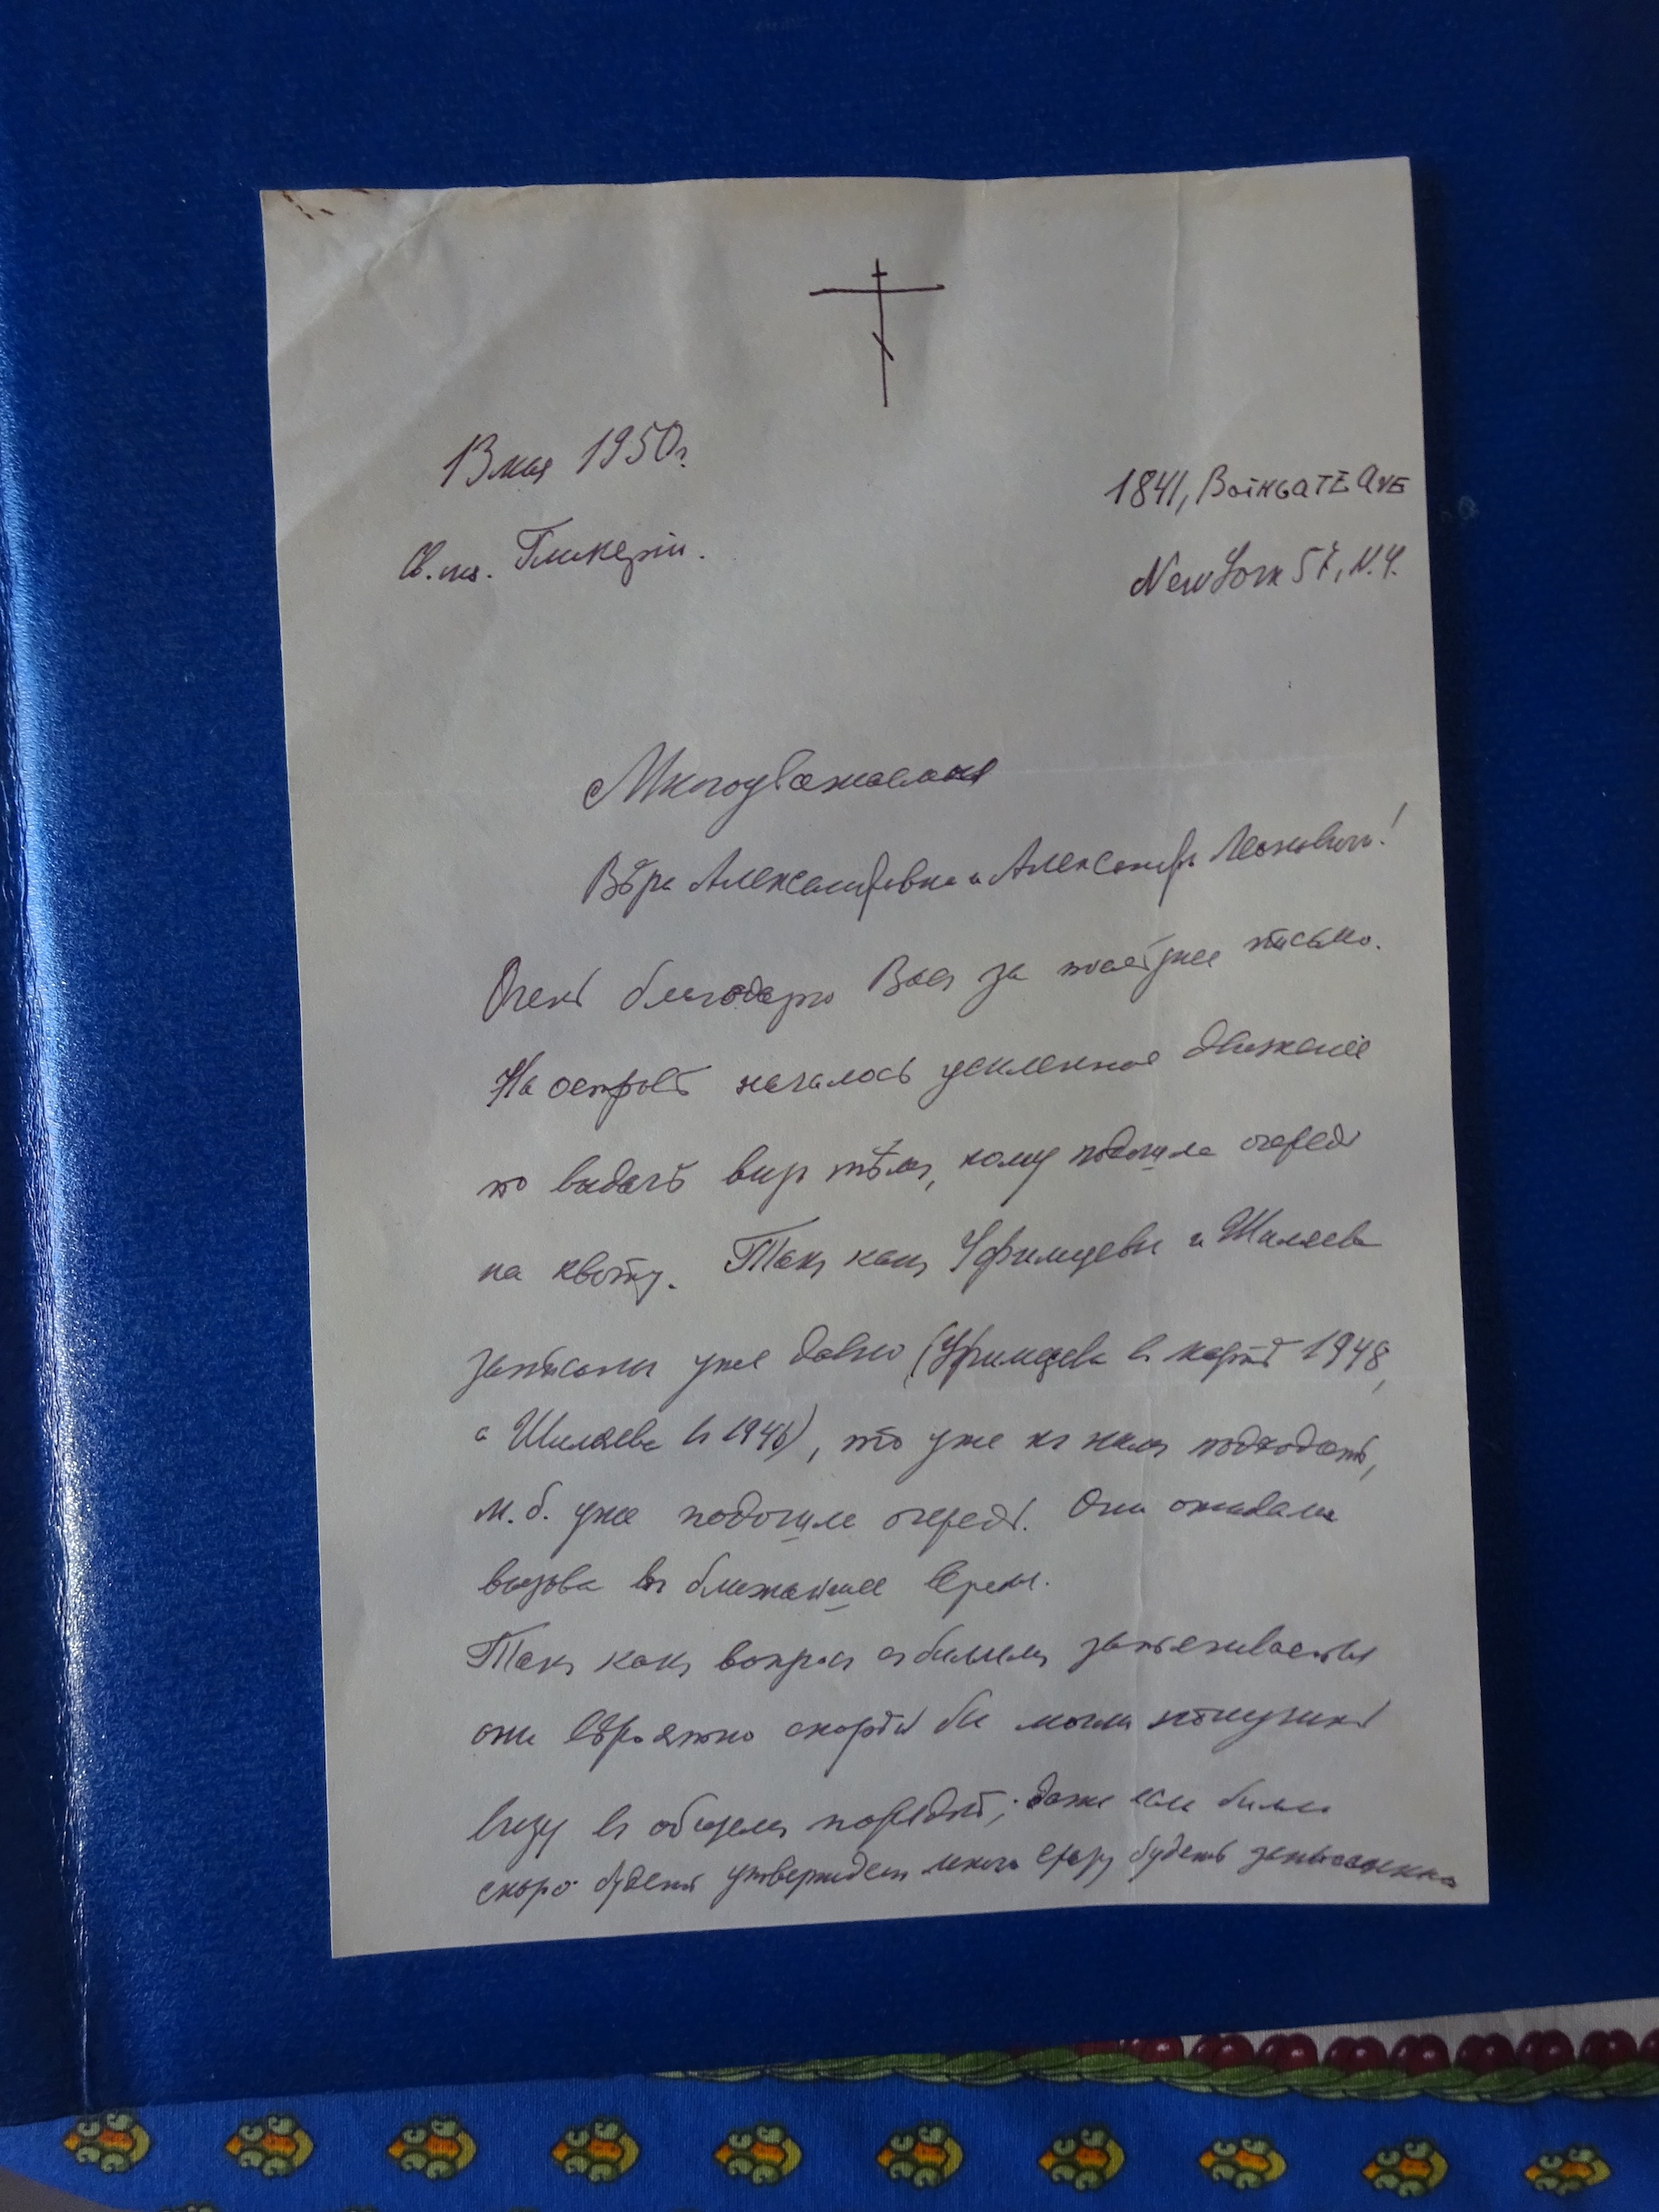 13 мая 1950г.
1841, BATHGATE AVE
Св. мц. Гликеріи.
New York 57, N.Y.
Многоуважаемые
Вѣра Александровна и Александръ Леонович!
Очень благодарю Васъ за послѣднее письмо.
На островѣ началось усиленное движеніе
по выдачѣ визъ тѣмъ, кому подошла очередь
на квоту. Такъ какъ Уфимцевы и Шиляева
записаны уже давно (Уфимцева въ мартѣ 1948,
а Шиляева въ 1946), то уже къ нимъ подходитъ,
м. б. уже подошла очередь. Они ожидали
вызова въ ближайшее время.
Такъ какъ вопросъ съ биллемъ затягивается
они вѣроятно скорѣй бы могли получить
визу въ общемъ порядкѣ; даже если билль
скоро будетъ утвержденъ много сразу будетъ